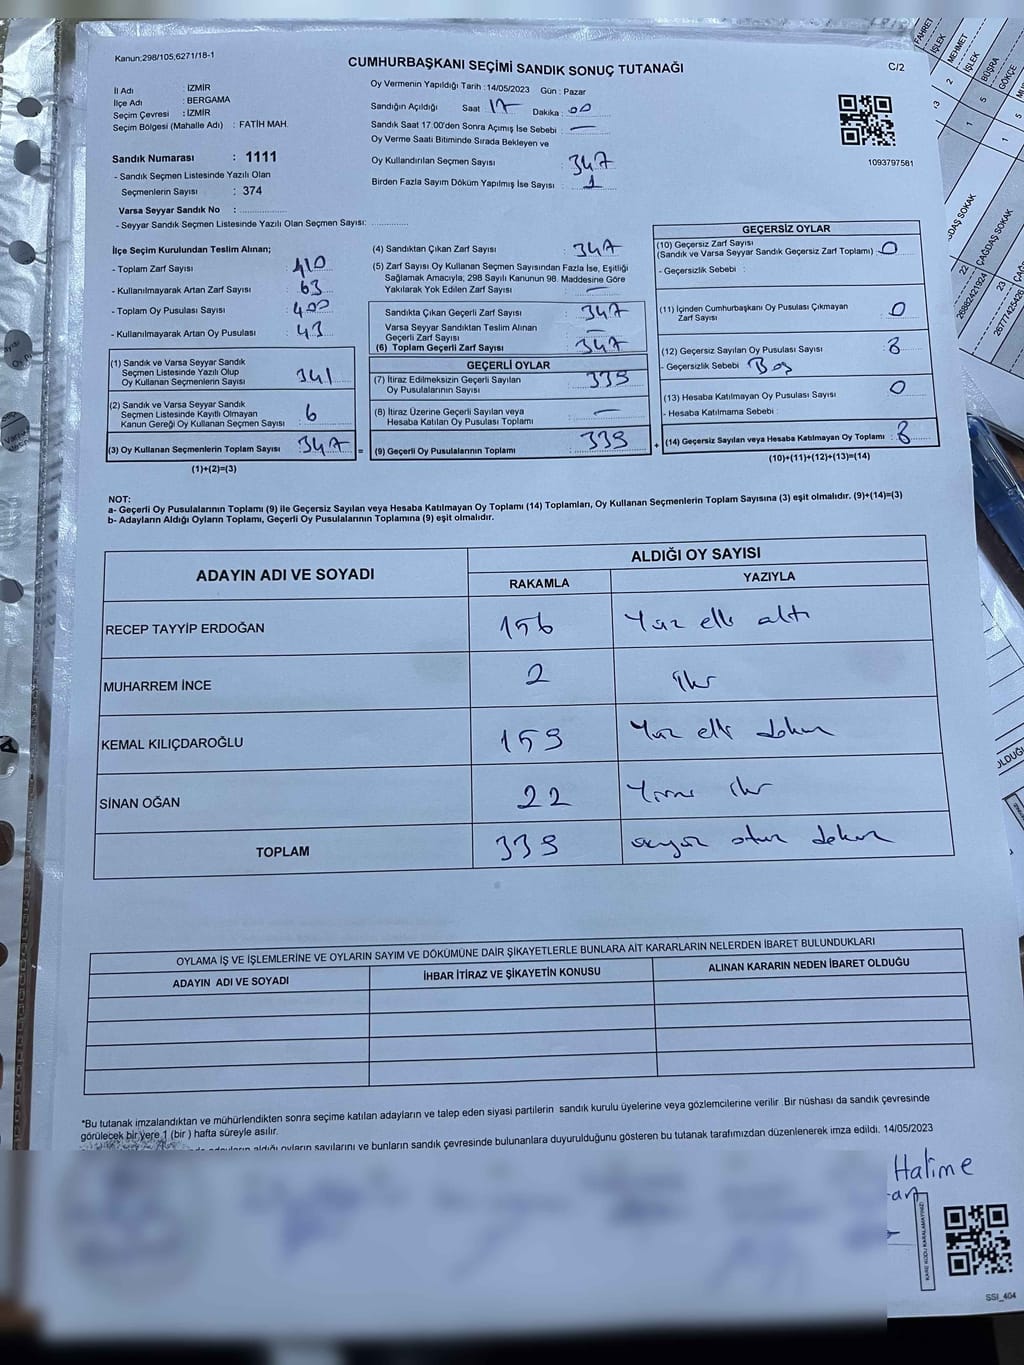 Kanun:298/105,6271/18-1
CUMHURBAŞKANI SEÇİMİ SANDIK SONUÇ TUTANAĞI
C/2
İl Adı : İZMİR
İlçe Adı : BERGAMA
Seçim Çevresi : İZMİR
Seçim Bölgesi (Mahalle Adı) : FATİH MAH.
Sandık Numarası : 1111
- Sandık Seçmen Listesinde Yazılı Olan
Seçmenlerin Sayısı : 374
Varsa Seyyar Sandık No :
- Seyyar Sandık Seçmen Listesinde Yazılı Olan Seçmen Sayısı:
Oy Vermenin Yapıldığı Tarih :14/05/2023 Gün : Pazar
Sandığın Açıldığı Saat 17 Dakika : 00
Sandık Saat 17.00'den Sonra Açımış İse Sebebi : —
Oy Verme Saati Bitiminde Sırada Bekleyen ve
Oy Kullandırılan Seçmen Sayısı : 347
Birden Fazla Sayım Döküm Yapılmış İse Sayısı : 1
1093797581
İlçe Seçim Kurulundan Teslim Alınan;
- Toplam Zarf Sayısı : 410
- Kullanılmayarak Artan Zarf Sayısı : 63
- Toplam Oy Pusulası Sayısı : 400
- Kullanılmayarak Artan Oy Pusulası : 43
(1) Sandık ve Varsa Seyyar Sandık
Seçmen Listesinde Yazılı Olup
Oy Kullanan Seçmenlerin Sayısı : 341
(2) Sandık ve Varsa Seyyar Sandık
Seçmen Listesinde Kayıtlı Olmayan
Kanun Gereği Oy Kullanan Seçmen Sayısı : 6
(3) Oy Kullanan Seçmenlerin Toplam Sayısı : 347
(1)+(2)=(3)
(4) Sandıktan Çıkan Zarf Sayısı : 347
(5) Zarf Sayısı Oy Kullanan Seçmen Sayısından Fazla İse, Eşitliği
Sağlamak Amacıyla; 298 Sayılı Kanunun 98. Maddesine Göre
Yakılarak Yok Edilen Zarf Sayısı : —
Sandıkta Çıkan Geçerli Zarf Sayısı : 347
Varsa Seyyar Sandıktan Teslim Alınan
Geçerli Zarf Sayısı : —
(6) Toplam Geçerli Zarf Sayısı : 347
GEÇERLİ OYLAR
(7) İtiraz Edilmeksizin Geçerli Sayılan
Oy Pusulalarının Sayısı : 339
(8) İtiraz Üzerine Geçerli Sayılan veya
Hesaba Katılan Oy Pusulası Toplamı : —
(9) Geçerli Oy Pusulalarının Toplamı : 339
GEÇERSİZ OYLAR
(10) Geçersiz Zarf Sayısı
(Sandık ve Varsa Seyyar Sandık Geçersiz Zarf Toplamı) : 0
- Geçersizlik Sebebi :
(11) İçinden Cumhurbaşkanı Oy Pusulası Çıkmayan
Zarf Sayısı : 0
(12) Geçersiz Sayılan Oy Pusulası Sayısı : 8
- Geçersizlik Sebebi : Boş
(13) Hesaba Katılmayan Oy Pusulası Sayısı : 0
- Hesaba Katılmama Sebebi :
(14) Geçersiz Sayılan veya Hesaba Katılmayan Oy Toplamı : 8
(10)+(11)+(12)+(13)=(14)
NOT:
a- Geçerli Oy Pusulalarının Toplamı (9) ile Geçersiz Sayılan veya Hesaba Katılmayan Oy Toplamı (14) Toplamları, Oy Kullanan Seçmenlerin Toplam Sayısına (3) eşit olmalıdır. (9)+(14)=(3)
b- Adayların Aldığı Oyların Toplamı, Geçerli Oy Pusulalarının Toplamına (9) eşit olmalıdır.
ADAYIN ADI VE SOYADI
ALDIĞI OY SAYISI
RAKAMLA
YAZIYLA
RECEP TAYYİP ERDOĞAN 156 Yüz elli altı
MUHARREM İNCE 2 iki
KEMAL KILIÇDAROĞLU 159 Yüz elli dokuz
SİNAN OĞAN 22 Yirmi iki
TOPLAM 339 üçyüz otuz dokuz
OYLAMA İŞ VE İŞLEMLERİNE VE OYLARIN SAYIM VE DÖKÜMÜNE DAİR ŞİKAYETLERLE BUNLARA AİT KARARLARIN NELERDEN İBARET BULUNDUKLARI
ADAYIN ADI VE SOYADI
İHBAR İTİRAZ VE ŞİKAYETİN KONUSU
ALINAN KARARIN NEDEN İBARET OLDUĞU
*Bu tutanak imzalandıktan ve mühürlendikten sonra seçime katılan adayların ve talep eden siyasi partilerin sandık kurulu üyelerine veya gözlemcilerine verilir .Bir nüshası da sandık çevresinde
görülecek bir yere 1 (bir ) hafta süreyle asılır.
aldığı oyların sayılarını ve bunların sandık çevresinde bulunanlara duyurulduğunu gösteren bu tutanak tarafımızdan düzenlenerek imza edildi. 14/05/2023
Halime
KARE KODU KARALAMAYINIZ
SSI_404
FAHRET
İŞLEK
MEHMET
İŞLEK
BÜŞRA
GÖKÇE
22 ÇAĞDAŞ SOKAK
26882421924
23